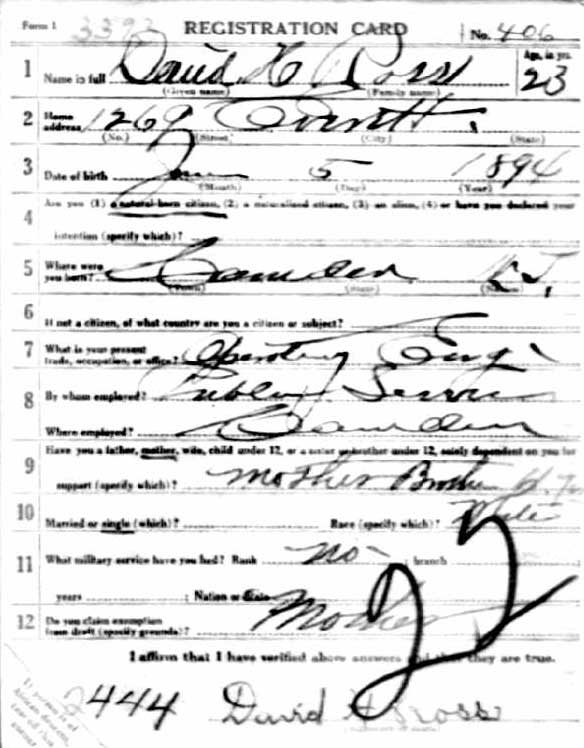 Form 1 3393 REGISTRATION CARD No. 406
1 Name in full David H Ross Age, in yrs. 23
(Given name) (Family name)
2 Home address 1269 Everett
(No.) (Street) (City) (State)
3 Date of birth Jan 5 1894
(Month) (Day) (Year)
4 Are you (1) a natural-born citizen, (2) a naturalized citizen, (3) an alien, (4) or have you declared your
intention (specify which)?
5 Where were you born? Camden N.J.
(Town) (State) (Nation)
6 If not a citizen, of what country are you a citizen or subject?
7 What is your present trade, occupation, or office? Operating Engi
8 By whom employed? Public Service
Where employed? Camden
9 Have you a father, mother, wife, child under 12, or a sister or brother under 12, solely dependent on you for
support (specify which)? Mother Brother
10 Married or single (which)? Race (specify which)? White
11 What military service have you had? Rank no ; branch
years ; Nation or State
12 Do you claim exemption from draft (specify grounds)? Mother
I affirm that I have verified above answers and that they are true.
2444 David H Ross
If person is of African descent, tear off this corner